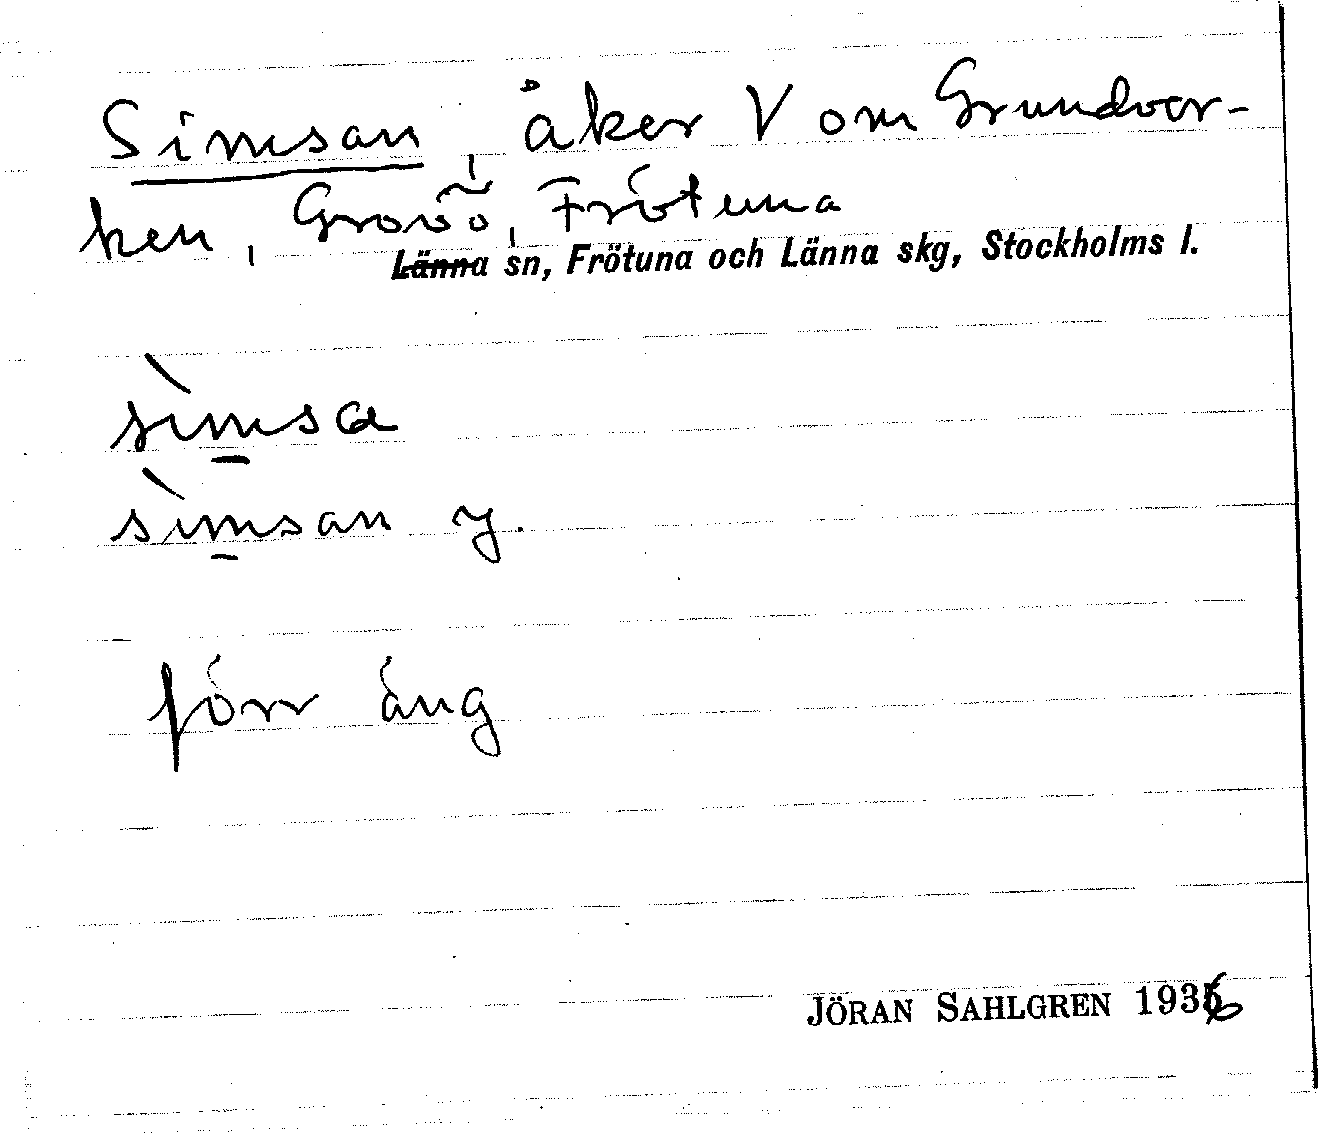 Simsan, åker V om Grundvor-
ken, Grovö, Frötuna
Länna sn, Frötuna och Länna skg, Stockholms l.
sìmsa
sìmsan y.
förr äng
JÖRAN SAHLGREN 1936